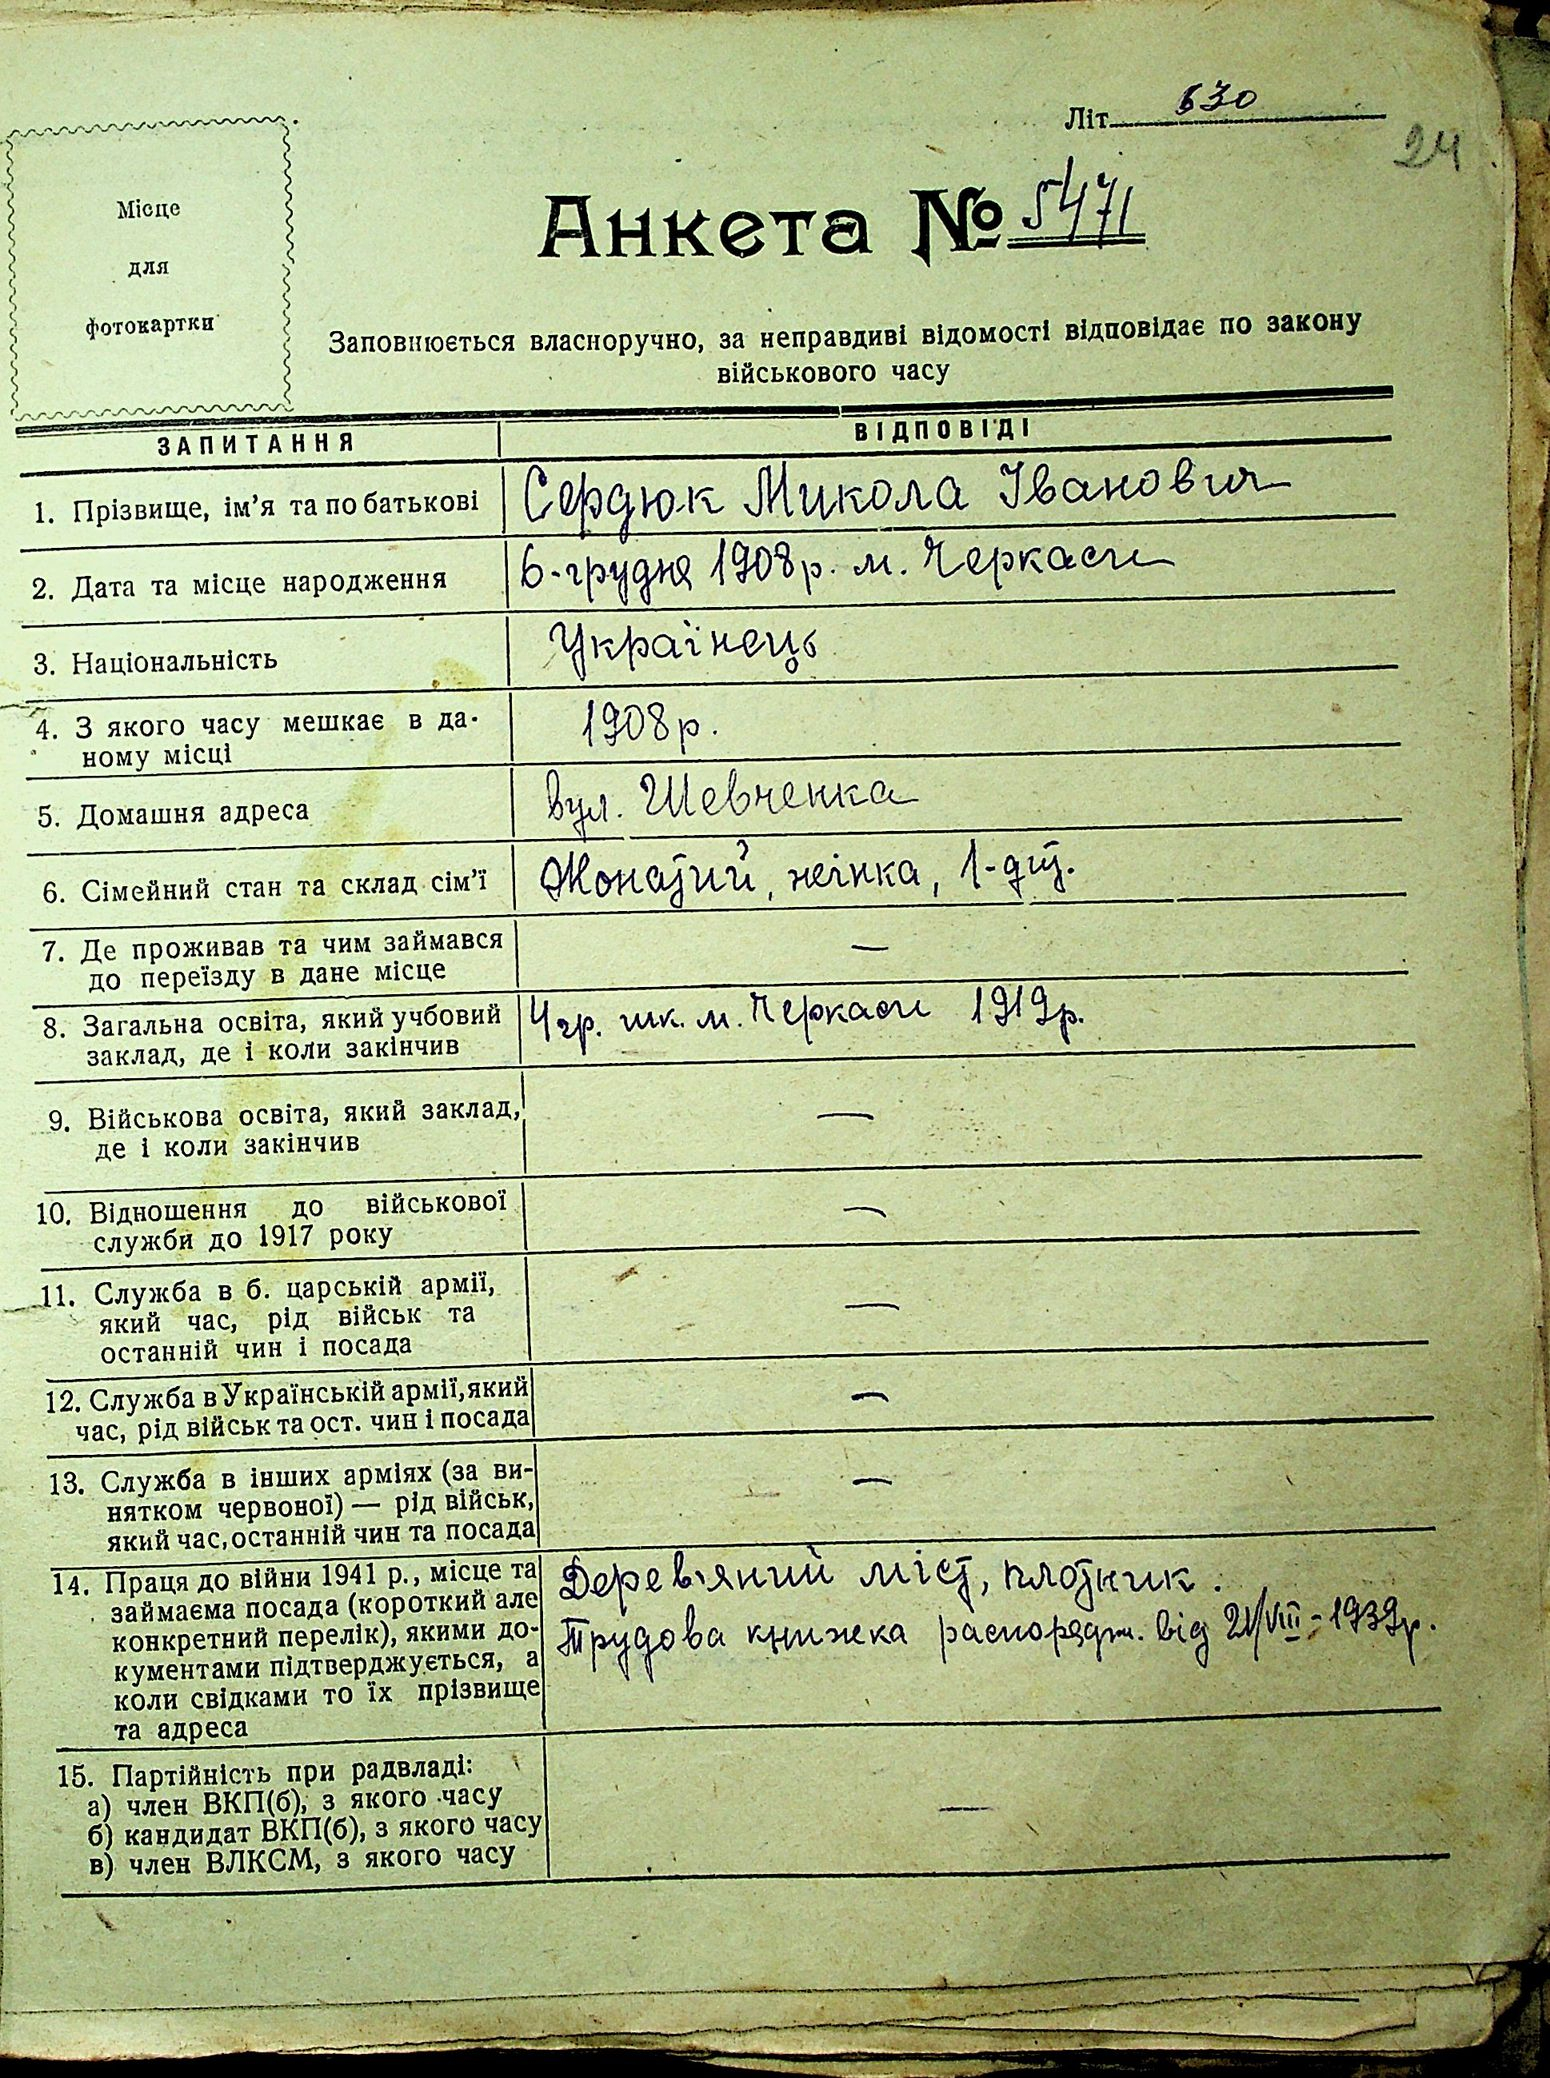 Літ 630
24
Місце
для
фотокартки
Анкета № 5471
Заповнюється власноручно, за неправдиві відомості відповідає по закону
військового часу
ЗАПИТАННЯ ВІДПОВІДІ
1. Прізвище, ім'я та по батькові Сердюк Микола Іванович
2. Дата та місце народження 6-грудня 1908р. м. Черкаси
3. Національність Українець
4. З якого часу мешкає в да-
ному місці 1908р.
5. Домашня адреса вул. Шевченка
6. Сімейний стан та склад сім'ї Жонатий, жінка, 1-дит.
7. Де проживав та чим займався
до переїзду в дане місце —
8. Загальна освіта, який учбовий
заклад, де і коли закінчив 4 гр. шк. м. Черкаси 1919р.
9. Військова освіта, який заклад,
де і коли закінчив —
10. Відношення до військової
служби до 1917 року —
11. Служба в б. царській армії,
який час, рід військ та
останній чин і посада —
12. Служба в Українській армії, який
час, рід військ та ост. чин і посада —
13. Служба в інших арміях (за ви-
нятком червоної) — рід військ,
який час, останній чин та посада —
14. Праця до війни 1941 р., місце та
займаєма посада (короткий але
конкретний перелік), якими до-
кументами підтверджується, а
коли свідками то їх прізвище
та адреса
Дерев'яний міст, плотник.
Трудова книжка распорядж. від 21/VIII-1939р.
15. Партійність при радвладі:
а) член ВКП(б), з якого часу
б) кандидат ВКП(б), з якого часу
в) член ВЛКСМ, з якого часу —